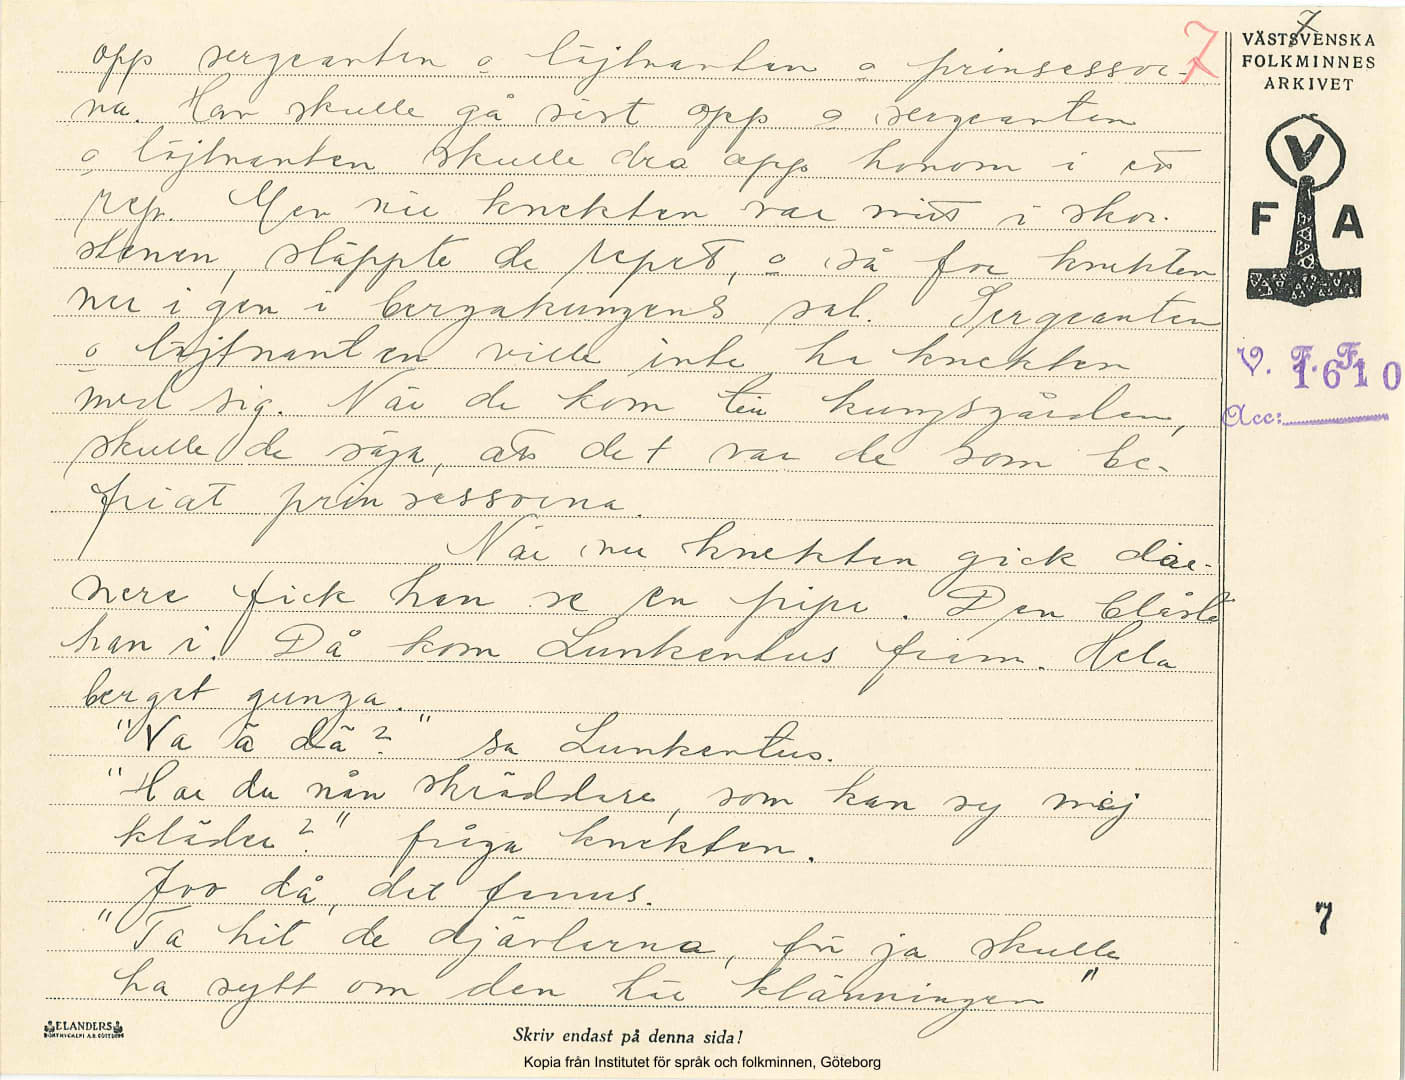 7
7
VÄSTSVENSKA
FOLKMINNES
ARKIVET
V
F A
V. F. F.
1610
Acc:
opp sergeanten o löjtnanten o prinsessor-
na. Han skulle gå sist opp o sergeanten
o löjtnanten skulle dra opp honom i ett
rep. Men när knekten var mitt i skor-
stenen, släppte de repet, o så for knekten
ner igen i bergakungens sal. Sergeanten
o löjtnanten ville inte ha knekten
med sig. När de kom till kungsgården,
skulle de säja, att det var de som be-
friat prinsessorna.
När nu knekten gick där-
nere fick han se en pipa. Den blåste
han i. Då kom Lunkentus fram. Hela
berget gunga.
"Va ä dä?" sa Lunkentus.
"Har du nån skräddare, som kan sy mej
kläder?" fråga knekten.
Joo då, det fanns.
"Ta hit de djävlarna, för ja skulle
ha sytt om den här klänningen"
7
ELANDERS
Skriv endast på denna sida!
Kopia från Institutet för språk och folkminnen, Göteborg